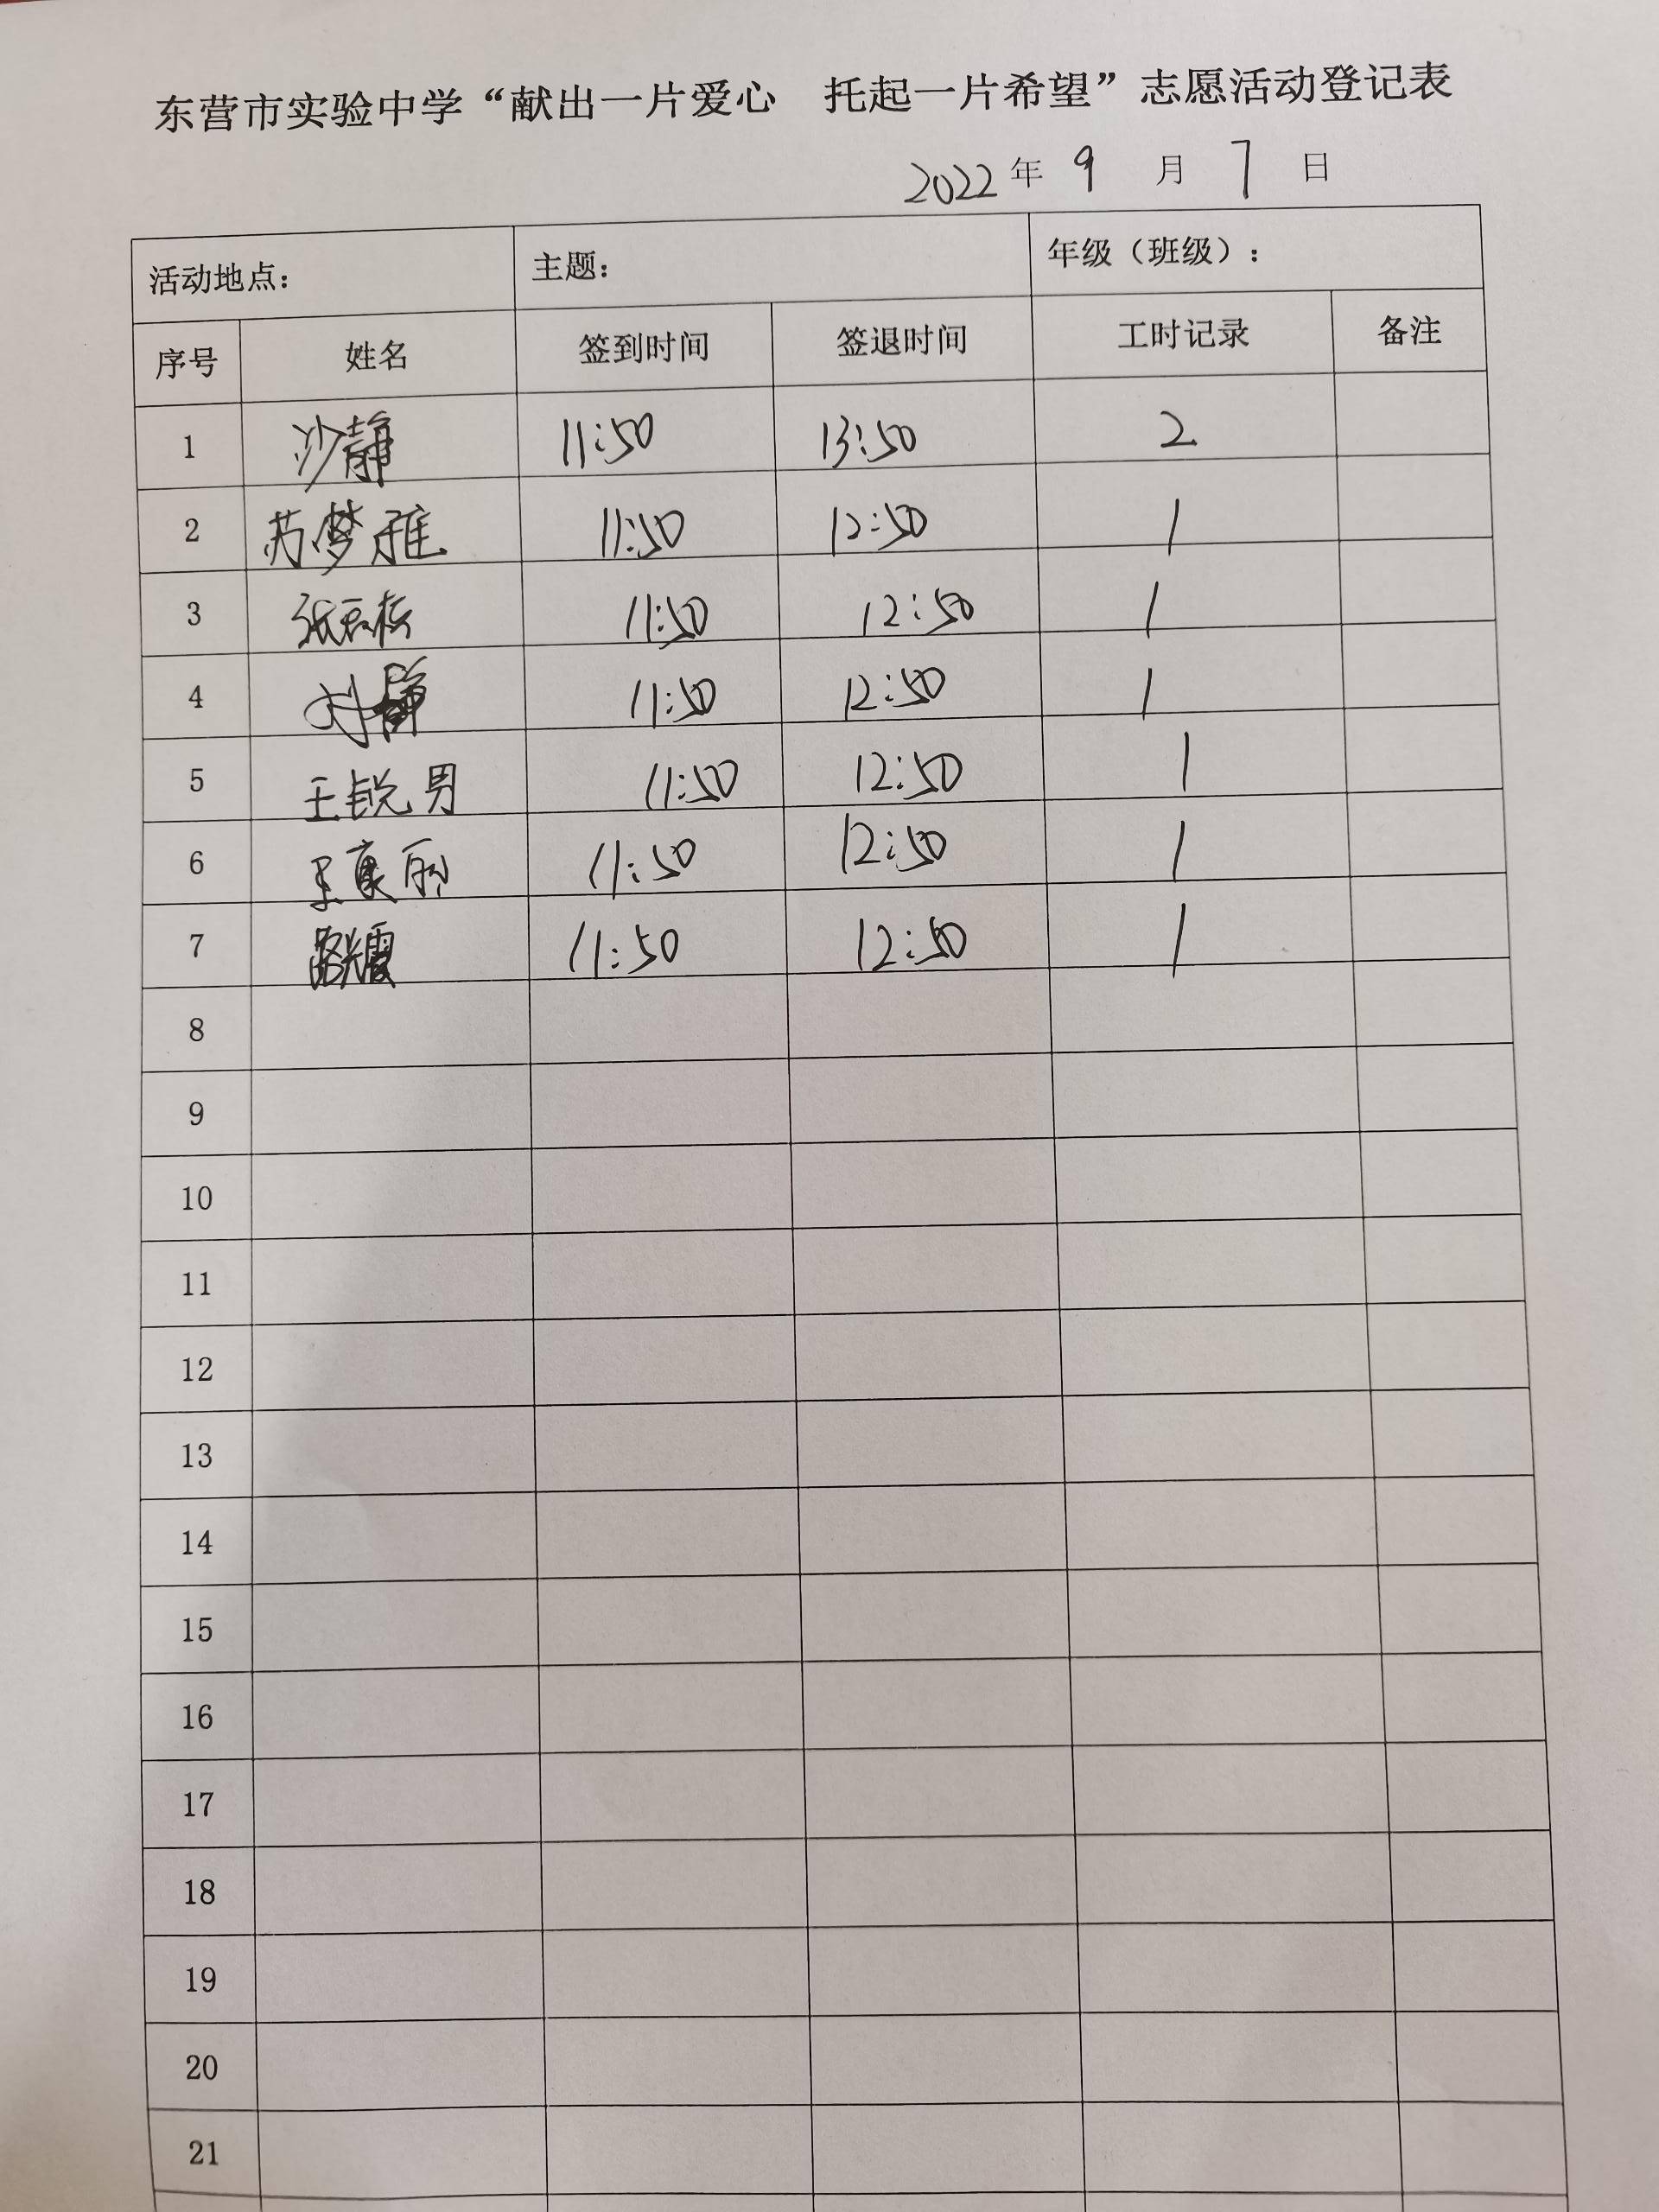 东营市实验中学“献出一片爱心 托起一片希望”志愿活动登记表
2022年 9 月 7 日
活动地点： 主题： 年级（班级）：
序号 姓名 签到时间 签退时间 工时记录 备注
1 沙静 11:50 13:50 2
2 苏梦雅 11:50 12:50 1
3 张 11:50 12:50 1
4 刘静 11:50 12:50 1
5 王锐男 11:50 12:50 1
6 王康丽 11:50 12:50 1
7 路光霞 11:50 12:50 1
8
9
10
11
12
13
14
15
16
17
18
19
20
21